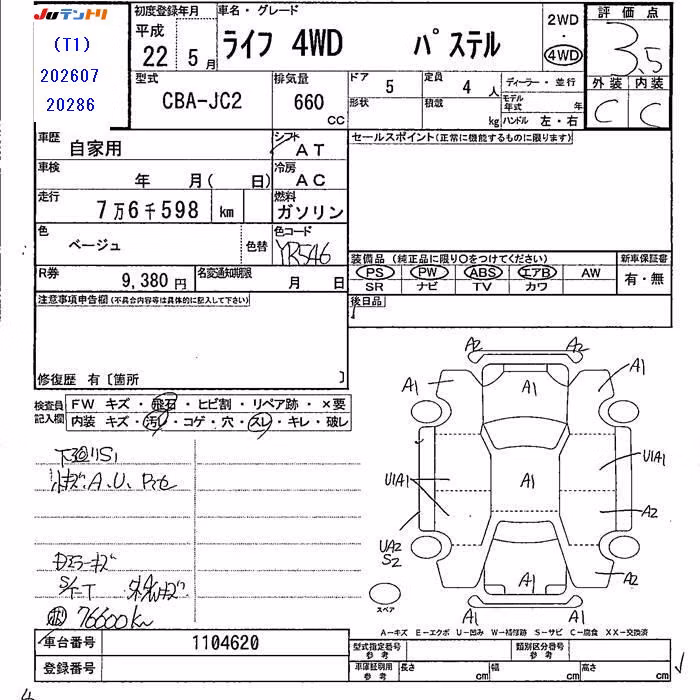 Juテントリ
(T1)
202607
20286
初度登録年月
平成
22 5月
車名・グレード
ライフ 4WD パステル
2WD
・
4WD
評価点
3.5
外装 内装
C C
型式
CBA-JC2
排気量
660
CC
ドア 5
定員 4 人
ディーラー・並行
形状
積載 kg
モデル年式 年
ハンドル 左・右
車歴 自家用
シフト AT
セールスポイント(正常に機能するものに限ります)
車検 年 月( 日)
冷房 AC
走行 7万6千598 km
燃料 ガソリン
色 ベージュ
色替
色コード YR546
装備品(純正品に限り○をつけてください)
新車保証書
PS PW ABS エアB AW
有・無
SR ナビ TV カワ
R券 9,380 円
名変通知期限 月 日
後日品
注意事項申告欄(不具合内容等は具体的に記入して下さい)
修復歴 有〔箇所 〕
検査員記入欄
FW キズ・飛石・ヒビ割・リペア跡・×要
内装 キズ・汚れ・コゲ・穴・スレ・キレ・破レ
A2 A2
A1 A1 A1
U1A1
U1A1 A1
A2
UA2
S2
A1 A2
A1 A1
スペア
A.U.
76600km
A-キズ E-エクボ U-凹み W-補修跡 S-サビ C-腐食 XX-交換済
車台番号 1104620
型式指定番号 参考
類別区分番号 参考
登録番号
車庫証明用 参考
長さ cm
幅 cm
高さ cm